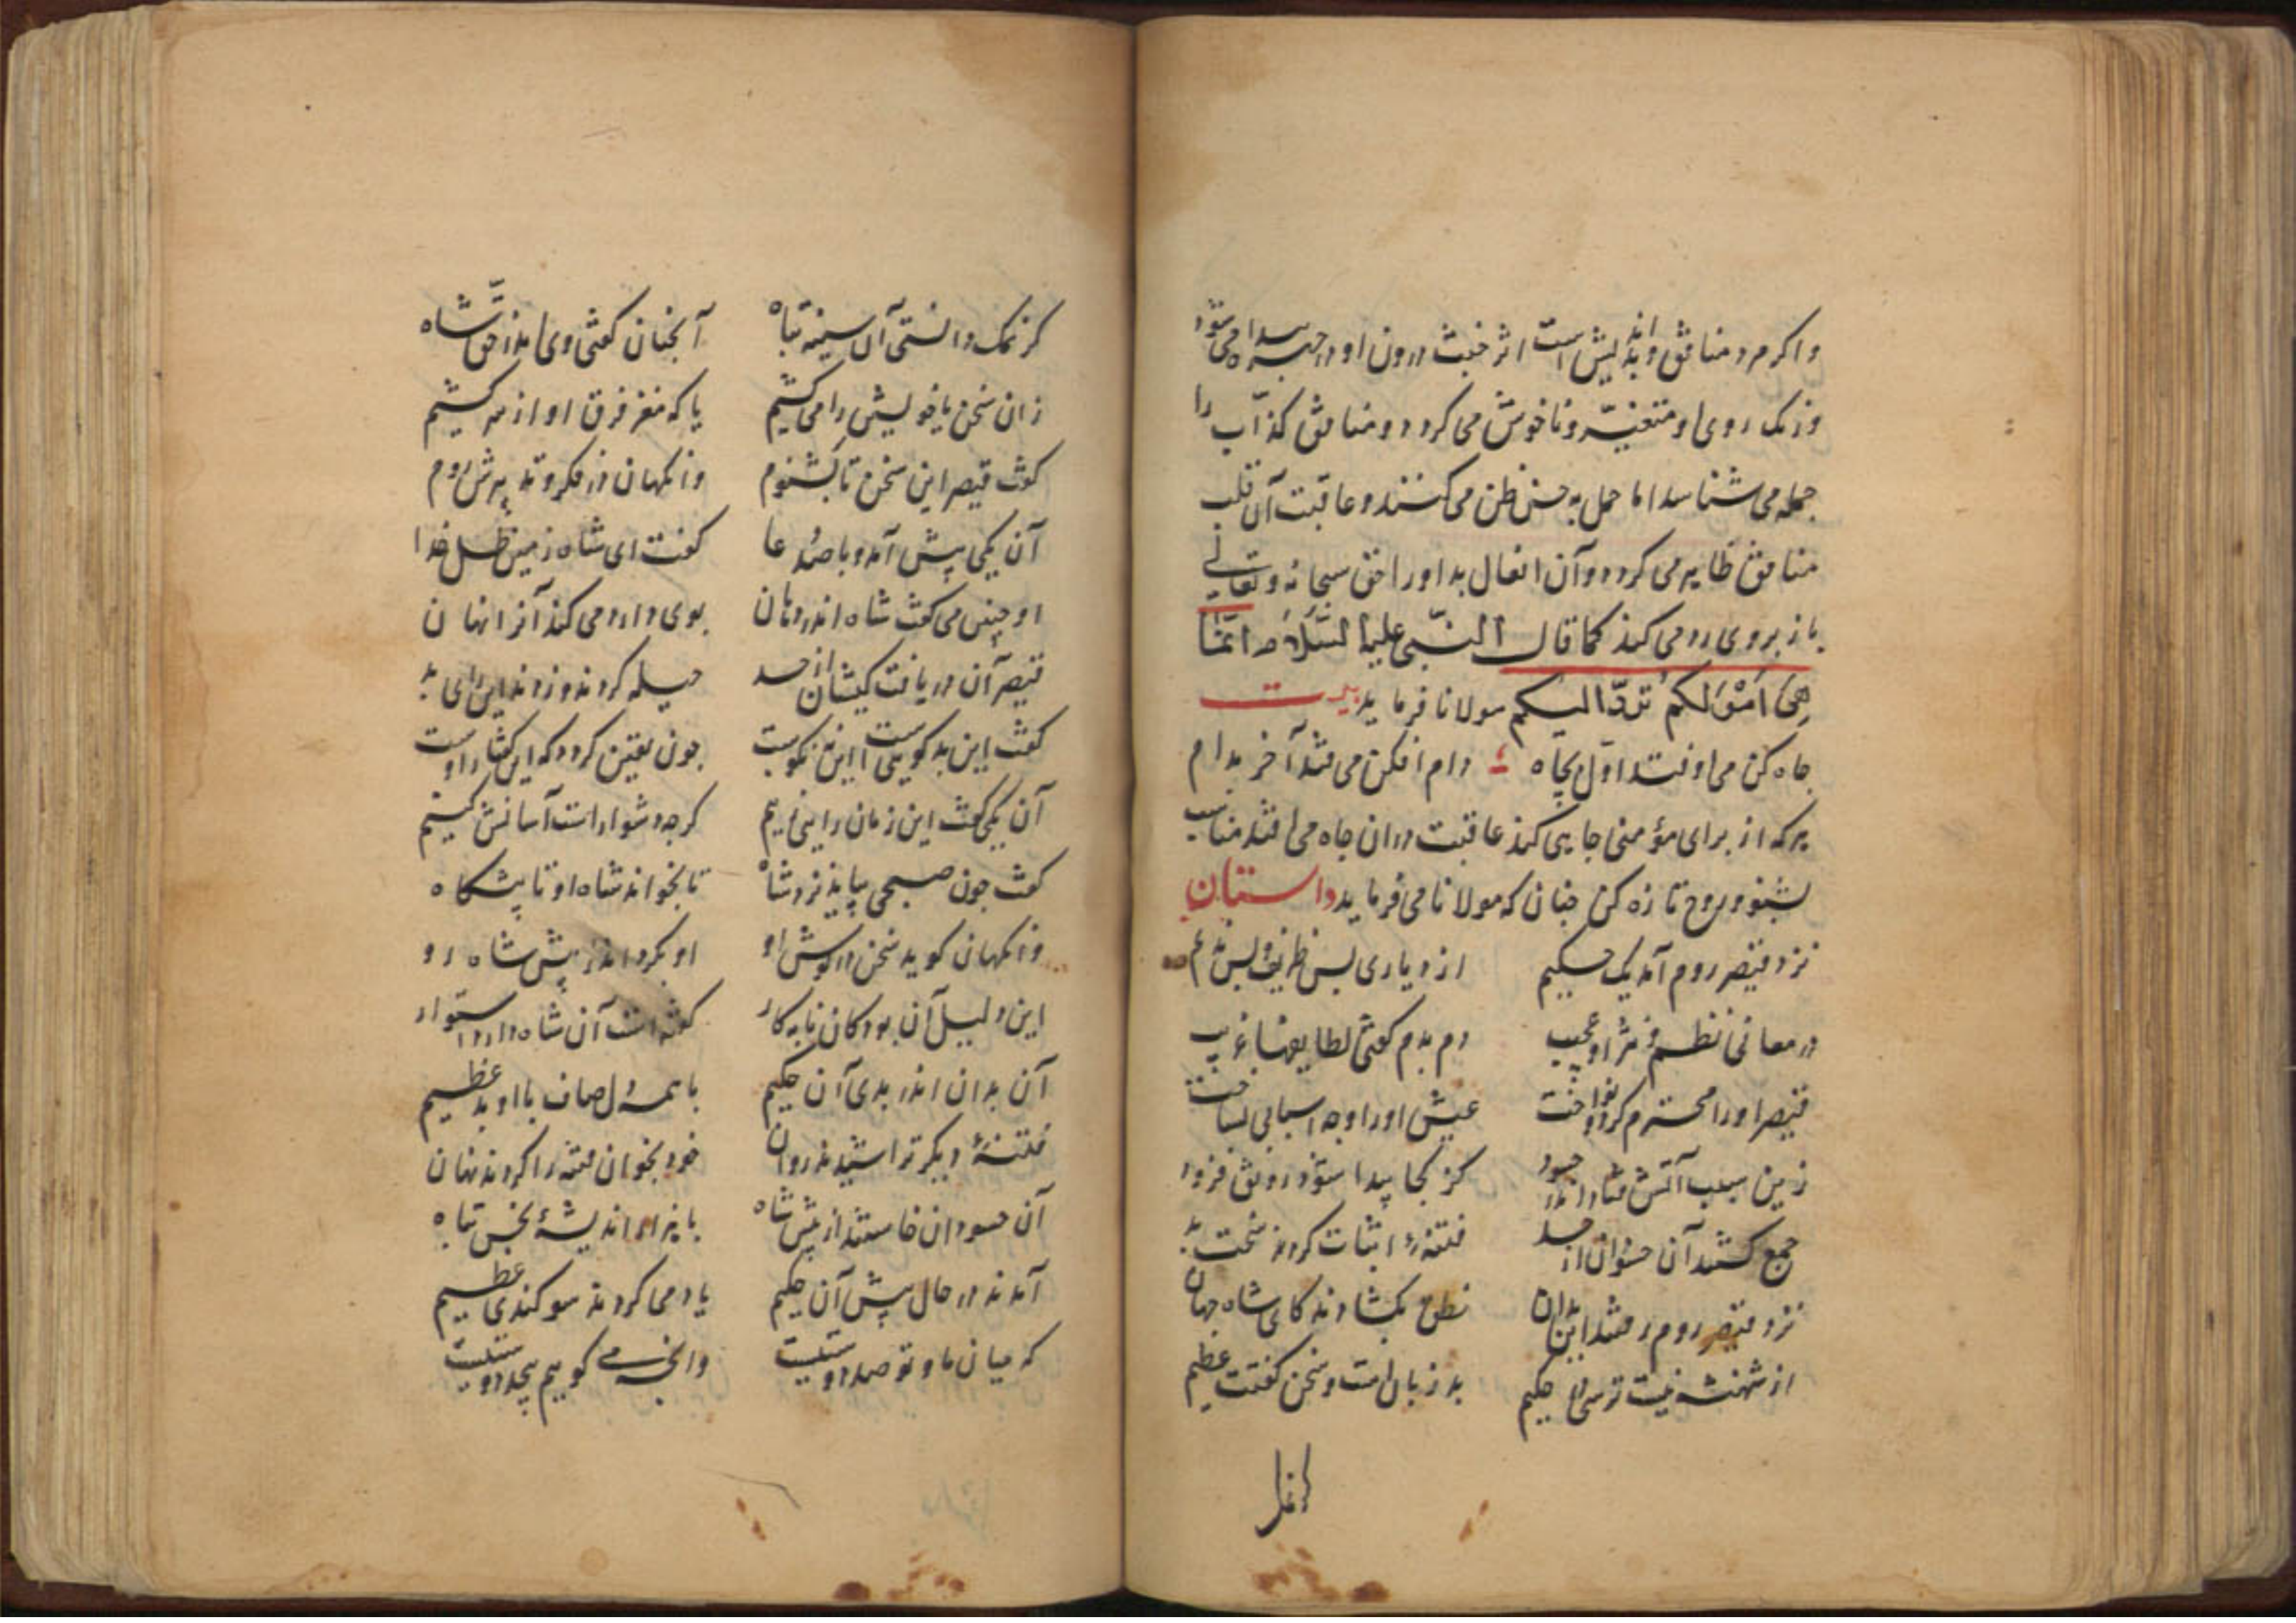 واکر مرد منافق و بداندیش است اثر خبث درون او در جبه پیدا می‌شود
و رنک روی او متغیّر و ناخوش می کردد و منافق کذاب را
جمله می شناسد اما حمل به حسن ظن می کنند و عاقبت آن قلب
منافق ظاهر می کردد و آن افعال بد او را حق سبحانه و تعالی
باز بروی رد می کند کما قال النّبی علیه السّلام انّما
هی اعمالکم تردّ الیکم مولانا فرماید بیت
جاه کن می اوفتد اوّل بچاه دام افکن می فتد آخر بدام
هرکه از برای مؤمنی چاهی کند عاقبت در ان چاه می افتد مناسب
بشنو و روح تازه کن جنان که مولانا می فرماید داستان
نزد قیصر روم آمد یک حکیم از دیاری بس ظریف و بس ندیم
در معانی نظم و نثر او عجیب دم بدم کفتی لطایفها غریب
قیصر او را محترم کرد و نواخت عیش او را وجه اسبابی بساخت
زین سبب آتش فتاد اندر حسود کز کجا پیدا شود رونق فزود
جمع کشتند آن حسودان از حسد فتنهٔ اثبات کردند سخت بد
نزد قیصر روم رفتند این بدان نطق بکشادند کای شاه جهان
از شهنشه نیست ترسی حکیم بد زبان است و سخن کفتت عظیم
کر نمک دانستی آن سینه تباه آنجنان کفتی وی اندر حق شاه
زان سخن یا خویش را می کشیم یا که مغز فرق او از سر کشیم
کفت قیصر این سخن تا بشنوم وانکهان در فکر و تدبیرش روم
آن یکی پیش آمد و با صد دعا کفت ای شاه زمین ظل خدا
او جنین می کفت شاه اندر دهان بوی دارد می کند آنرا نهان
قیصر آن دریافت کیشان از حسد حیله کردند و زدند این رای بد
کفت این بد کوییست یا این نکوست جون یقین کردد که این کفتار اوست
آن یکی کفت این زمان را بنکریم کرجه دشوار است آسانش کنیم
کفت جون صبحی بیاید نزد شاه تا بخواند شاه او تا پیشکاه
وانکهان کوید سخن در کوش او او بکرداند ز پیش شاه رو
این دلیل آن بود کان نابه کار کفته است آن شاه دارد استوار
آن بدان اندر بدی آن حکیم با همه دل صاف با او بد عظیم
فتنهٔ دیکر تراشیدند روان خود بخوان فتنه را کردند نهان
آن حسودان خاستند از پیش شاه با هزار اندیشهٔ نجس تباه
آمدند در حال پیش آن حکیم یاد می کردند سوکندی عظیم
که میان ما و تو صد دوستیست وانجه می کوییم بیحد دوستیست